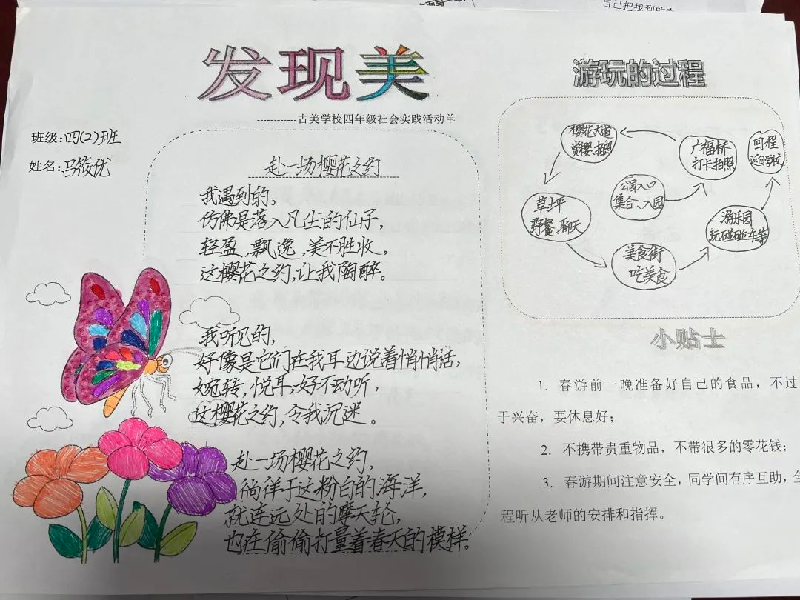 发现美
----------古美学校四年级社会实践活动单
班级:四(2)班
姓名:
赴一场樱花之约
我遇到的,
仿佛是落入凡尘的仙子,
轻盈、飘逸、美不胜收。
这樱花之约,让我陶醉。
我听见的,
好像是它们在我耳边说着悄悄话,
婉转、悦耳、好不动听,
这樱花之约,令我沉迷。
赴一场樱花之约,
徜徉于这粉白的海洋,
就连远处的摩天轮,
也在偷偷打量着春天的模样。
游玩的过程
公园入口
集合、入园
广福桥
打卡拍照
樱花大道
赏樱、拍照
草坪
野餐、聊天
美食街
吃美食
游乐园
玩碰碰车等
回程
小贴士
1. 春游前一晚准备好自己的食品,不过
于兴奋,要休息好;
2. 不携带贵重物品,不带很多的零花钱;
3. 春游期间注意安全,同学间有序互助,全
程听从老师的安排和指挥。